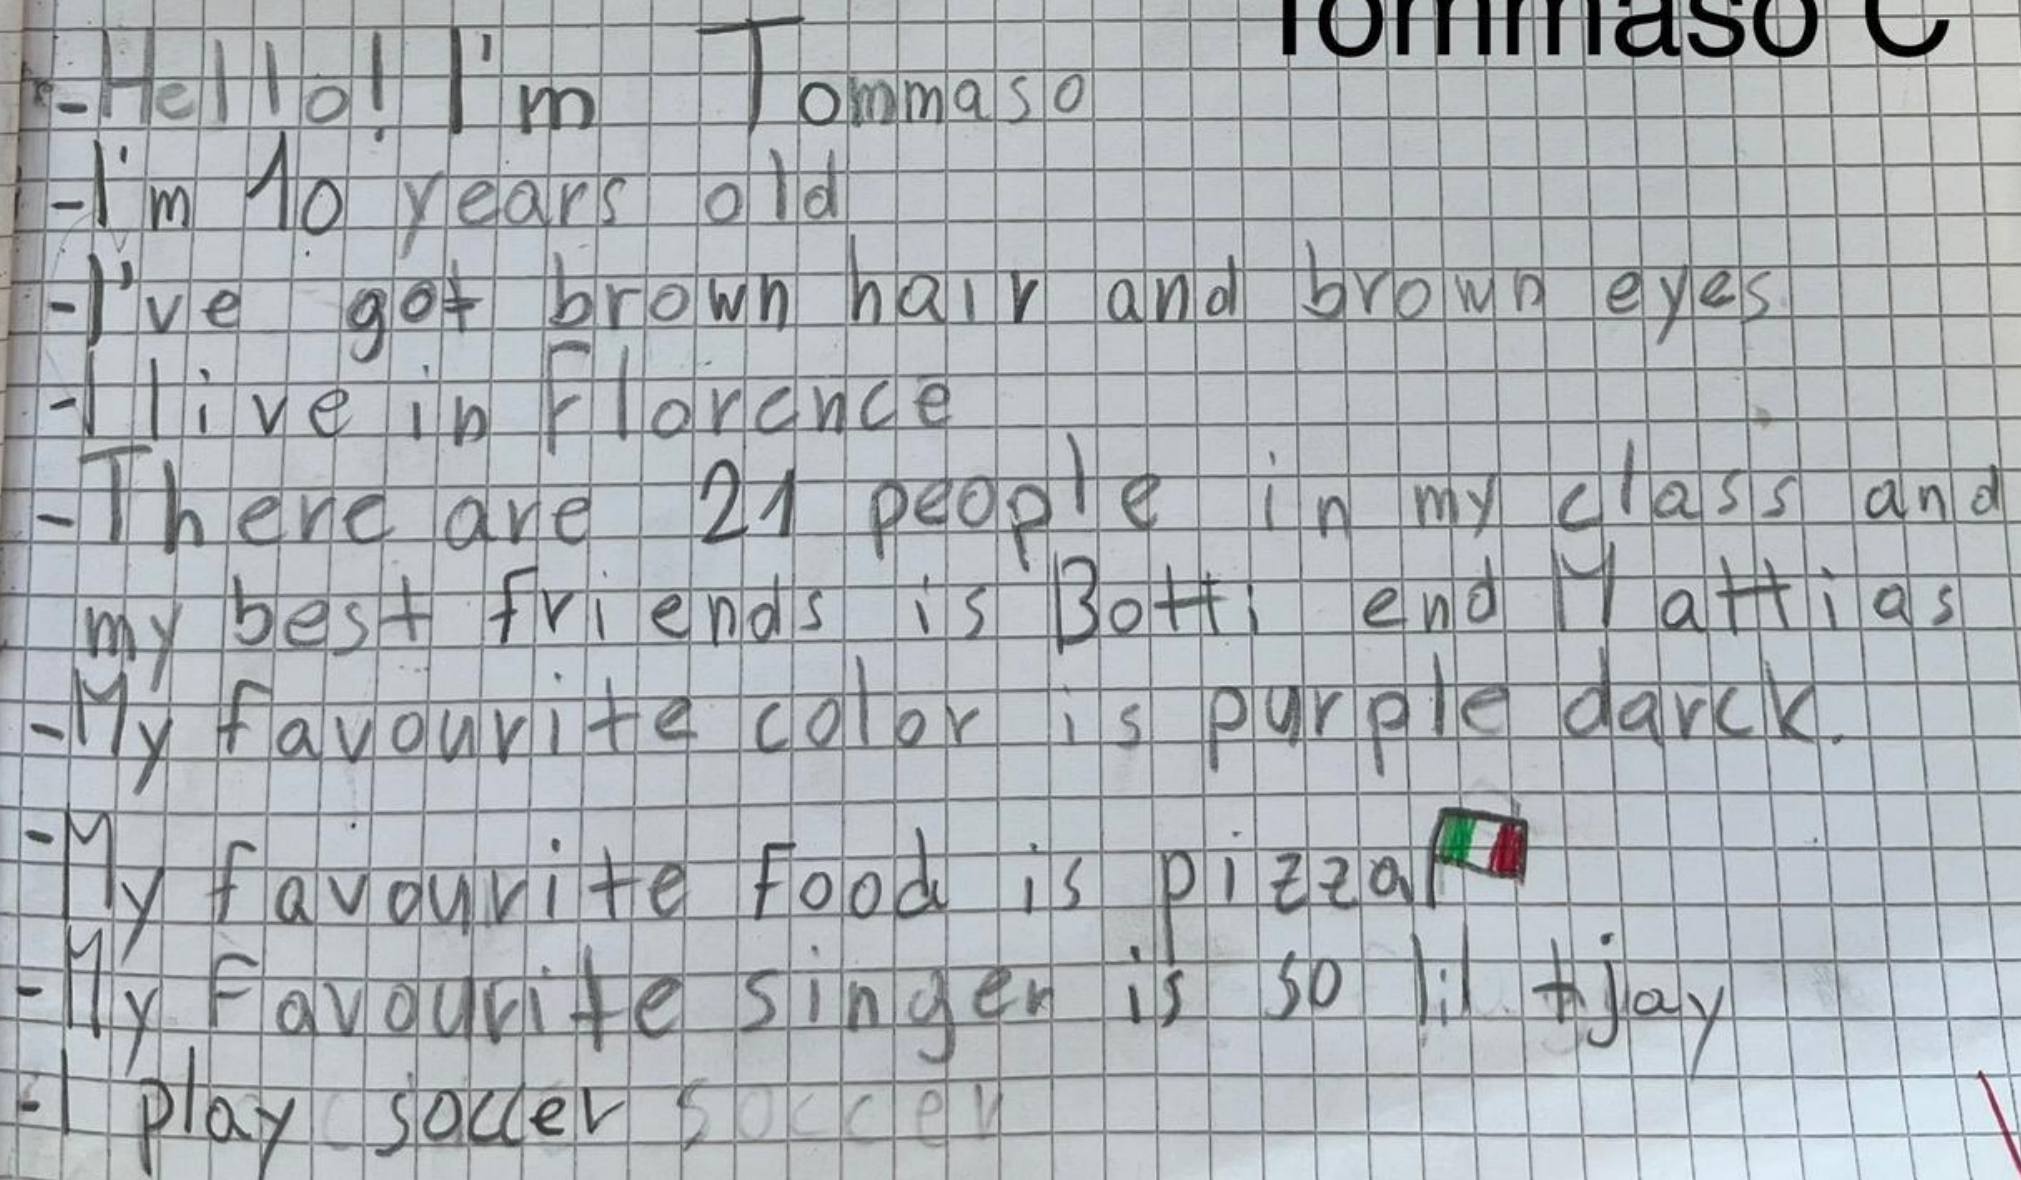 Tommaso C
-Hello! I'm Tommaso
-I'm 10 years old
-I've got brown hair and brown eyes
-I live in Florence
-There are 21 people in my class and
my best friends is Botti end Mattias
-My favourite color is purple darck.
-My favourite food is pizza
-My Favourite singer is so lil tjay
-I play soccer soccer